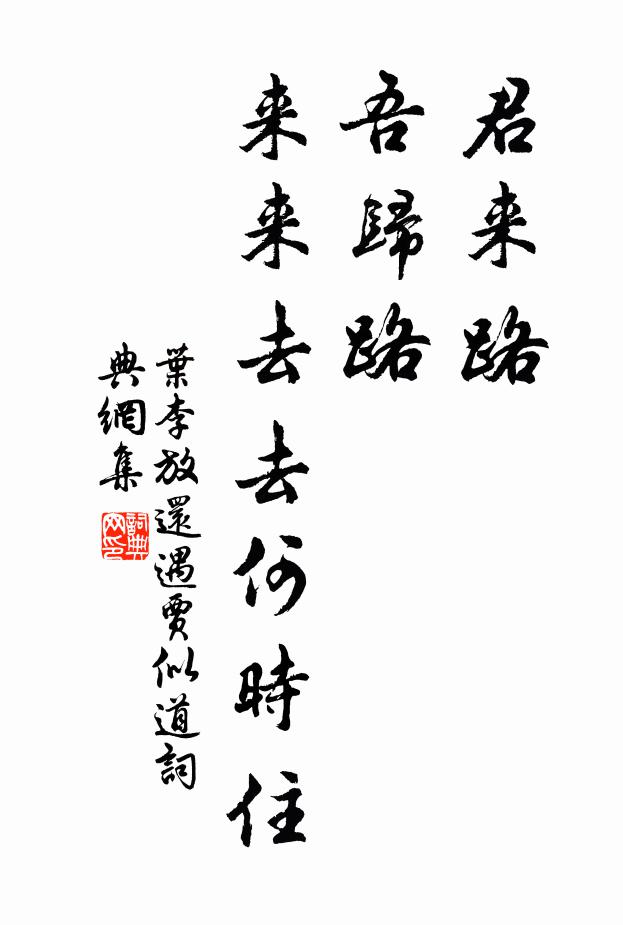 君来路
吾歸路
来来去去何時住
葉李放還遇賈似道詞
典網集
詞典
网印